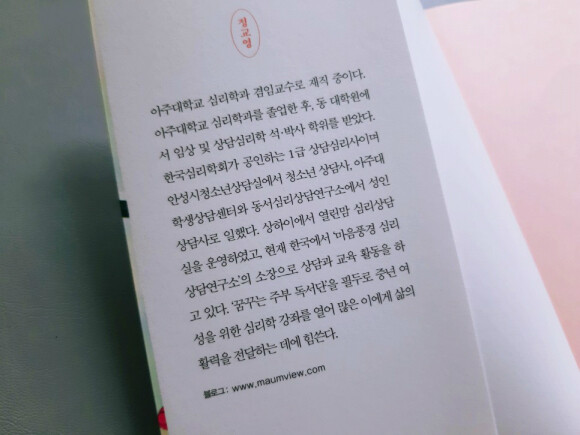 정교영
아주대학교 심리학과 겸임교수로 재직 중이다.
아주대학교 심리학과를 졸업한 후, 동 대학원에
서 임상 및 상담심리학 석·박사 학위를 받았다.
한국심리학회가 공인하는 1급 상담심리사이며
안성시청소년상담실에서 청소년 상담사, 아주대
학생상담센터와 동서심리상담연구소에서 성인
상담사로 일했다. 상하이에서 열린맘 심리상담
실을 운영하였고, 현재 한국에서 '마음풍경 심리
상담연구소'의 소장으로 상담과 교육 활동을 하
고 있다. '꿈꾸는 주부 독서단'을 필두로 중년 여
성을 위한 심리학 강좌를 열어 많은 이에게 삶의
활력을 전달하는 데에 힘쓴다.
블로그: www.maumview.com